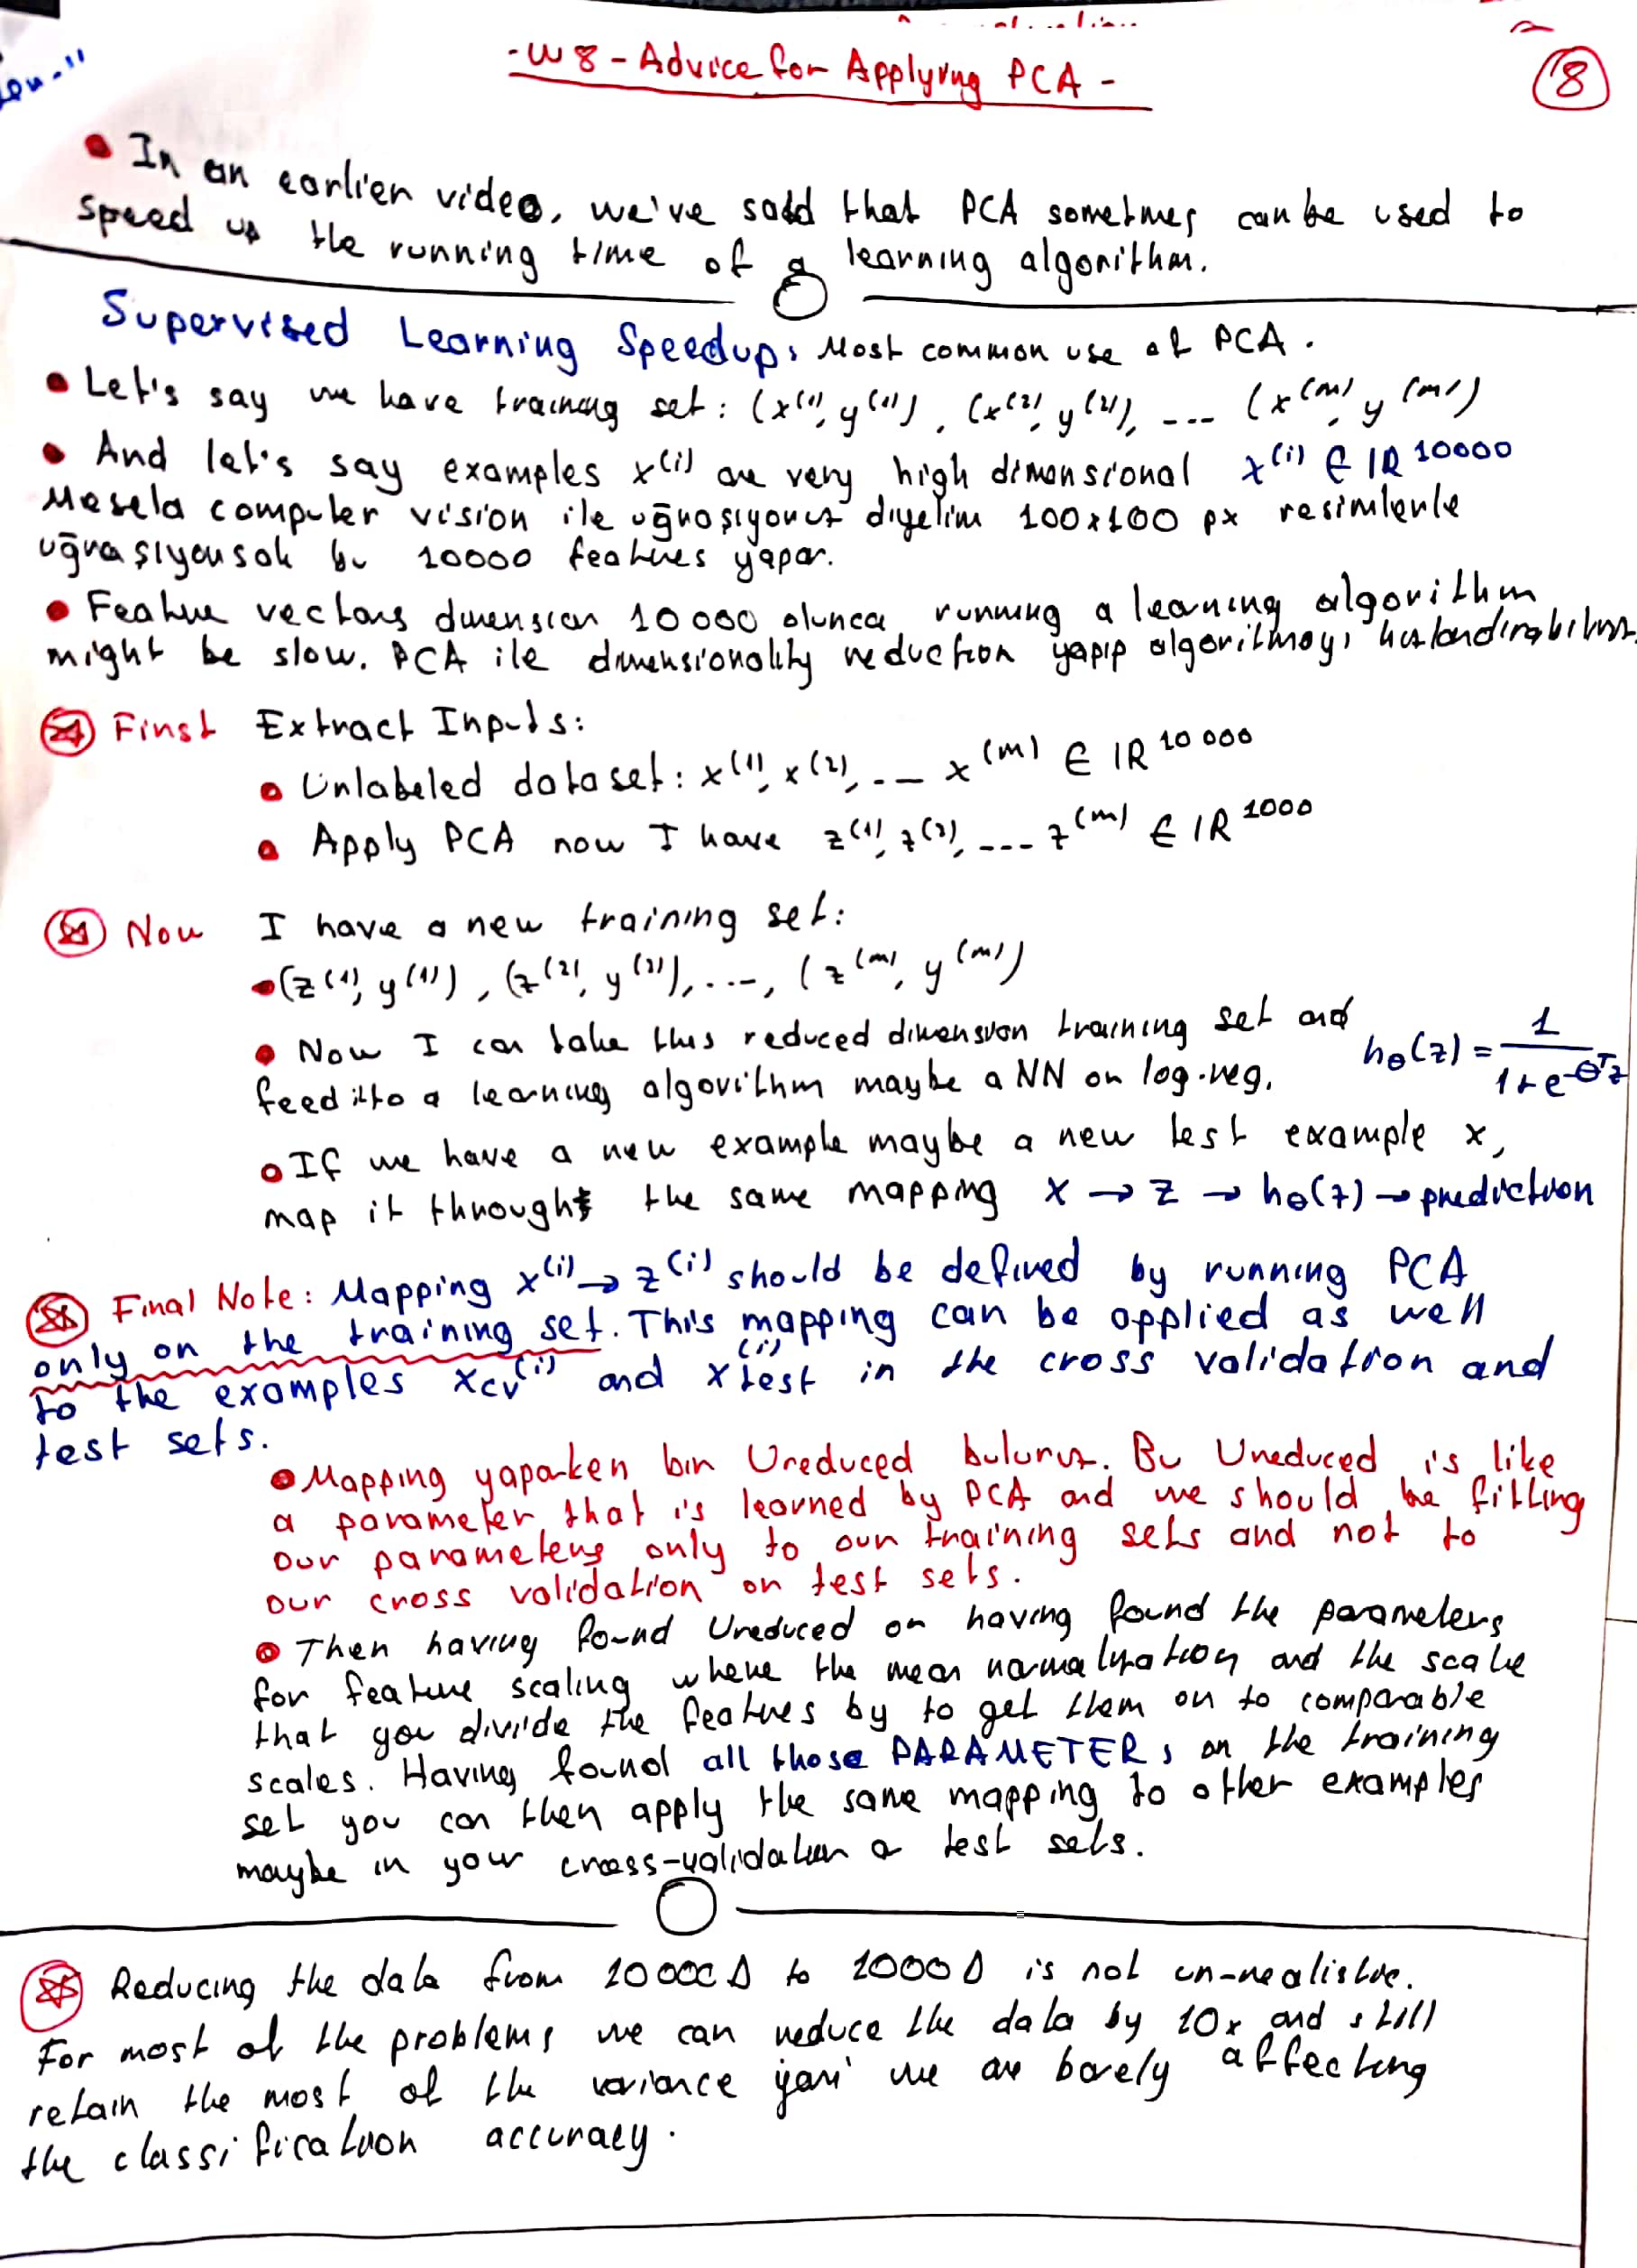 - W8 - Advice for Applying PCA -
8
• In an earlier video, we've said that PCA sometimes can be used to
speed up the running time of a learning algorithm.
Supervised Learning Speedup: Most common use of PCA.
• Let's say we have training set: (x⁽¹⁾, y⁽¹⁾), (x⁽²⁾, y⁽²⁾), --- (x⁽ᵐ⁾, y⁽ᵐ⁾)
• And let's say examples x⁽ⁱ⁾ are very high dimensional x⁽ⁱ⁾ ∈ IR¹⁰⁰⁰⁰
Mesela computer vision ile uğraşıyoruz diyelim 100x100 px resimlerle
uğraşıyorsak bu 10000 features yapar.
• Feature vectors dimension 10000 olunca running a learning algorithm
might be slow. PCA ile dimensionality reduction yapıp algoritmayı hızlandırabiliriz.
First Extract Inputs:
• Unlabeled dataset: x⁽¹⁾, x⁽²⁾, --- x⁽ᵐ⁾ ∈ IR¹⁰⁰⁰⁰
• Apply PCA now I have z⁽¹⁾, z⁽²⁾, --- z⁽ᵐ⁾ ∈ IR¹⁰⁰⁰
Now I have a new training set:
• (z⁽¹⁾, y⁽¹⁾), (z⁽²⁾, y⁽²⁾), ---, (z⁽ᵐ⁾, y⁽ᵐ⁾)
• Now I can take this reduced dimension training set and
feed it to a learning algorithm maybe a NN or log.reg.
hθ(z) = 1 / (1 + e^(-θᵀz))
• If we have a new example maybe a new test example x,
map it through the same mapping x → z → hθ(z) → prediction
Final Note: Mapping x⁽ⁱ⁾ → z⁽ⁱ⁾ should be defined by running PCA
only on the training set. This mapping can be applied as well
to the examples xcv⁽ⁱ⁾ and xtest⁽ⁱ⁾ in the cross validation and
test sets.
• Mapping yaparken bir Ureduced buluruz. Bu Ureduced is like
a parameter that is learned by PCA and we should be fitting
our parameters only to our training sets and not to
our cross validation or test sets.
• Then having found Ureduced or having found the parameters
for feature scaling where the mean normalization and the scale
that you divide the features by to get them on to comparable
scales. Having found all those PARAMETERs on the training
set you can then apply the same mapping to other examples
maybe in your cross-validation or test sets.
Reducing the data from 10000D to 1000D is not un-realistic.
For most of the problems we can reduce the data by 10x and still
retain the most of the variance yani we are barely affecting
the classification accuracy.